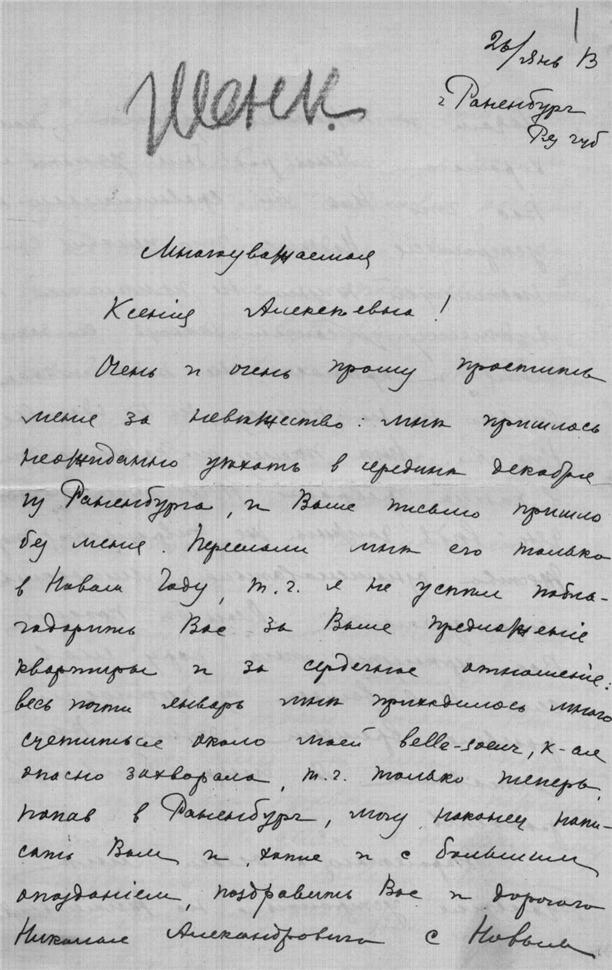 26/янв 13
г Раненбург
Ряз губ
Шенк.
Многоуважаемая
Ксенія Алексѣевна!
Очень и очень прошу простить
меня за невѣжество: мнѣ пришлось
неожиданно уѣхать в серединѣ декабря
из Раненбурга, и Ваше письмо пришло
без меня. Переслали мнѣ его только
в Новом Году, т.ч. я не успѣл побла-
годарить Вас за Ваше предложеніе
квартиры и за сердечное отношеніе:
весь почти январь мнѣ приходилось много
суетиться около моей belle-soeur, к-ая
опасно захворала, т.ч. только теперь,
попав в Раненбург, могу наконец напи-
сать Вам и, хотя и с большим
опозданіем, поздравить Вас и дорогого
Николая Александровича с Новым